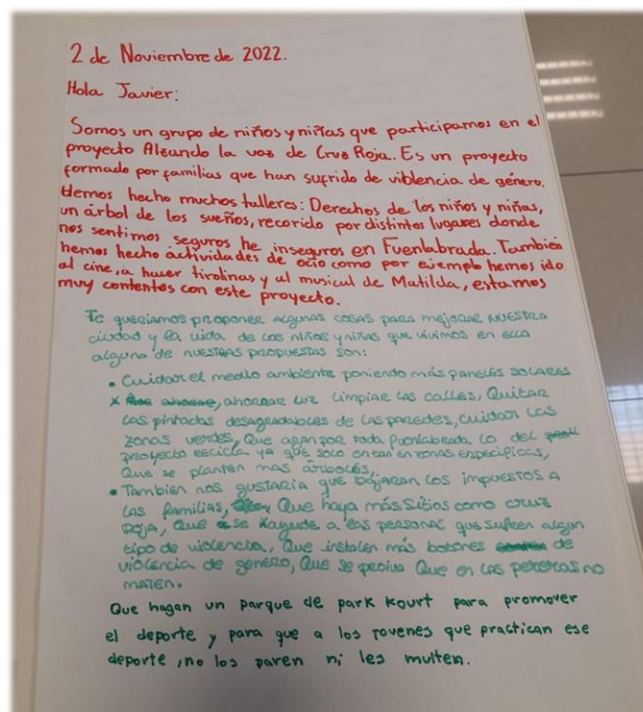 2 de Noviembre de 2022.
Hola Javier:
Somos un grupo de niños y niñas que participamos en el
proyecto Alzando la voz de Cruz Roja. Es un proyecto
formado por familias que han sufrido de violencia de género.
Hemos hecho muchos talleres: Derechos de los niños y niñas,
un árbol de los sueños, recorido por distintos lugares donde
nos sentimos seguros he inseguros en Fuenlabrada. También
hemos hecho actividades de ocio como por ejemplo hemos ido
al cine, a hacer tirolinas y al musical de Matilda, estamos
muy contentos con este proyecto.
Te queriamos proponer algunas cosas para mejorar nuestra
ciudad y la vida de los niños y niñas que vivimos en ella
alguna de nuestras propuestas son:
• Cuidar el medio ambiente poniendo más paneles solares
, ahorrar luz limpiar las calles, Quitar
las pintadas desagradables de las paredes, cuidar las
zonas verdes, Que agan por toda Fuenlabrada lo del
proyecto recicla ya que solo entan en zonas especificas,
Que se planten mas árboles,
• También nos gustaria que bajaran los impuestos a
las familias, Que haya más sitios como cruz
roja, Que se ayude a las personas que sufren algun
tipo de violencia, Que instalen más botones de
violencia de genero, Que se Que en las no
maten.
Que hagan un parque de park kourt para promover
el deporte y para que a los jovenes que practican ese
deporte, no los paren ni les multen.